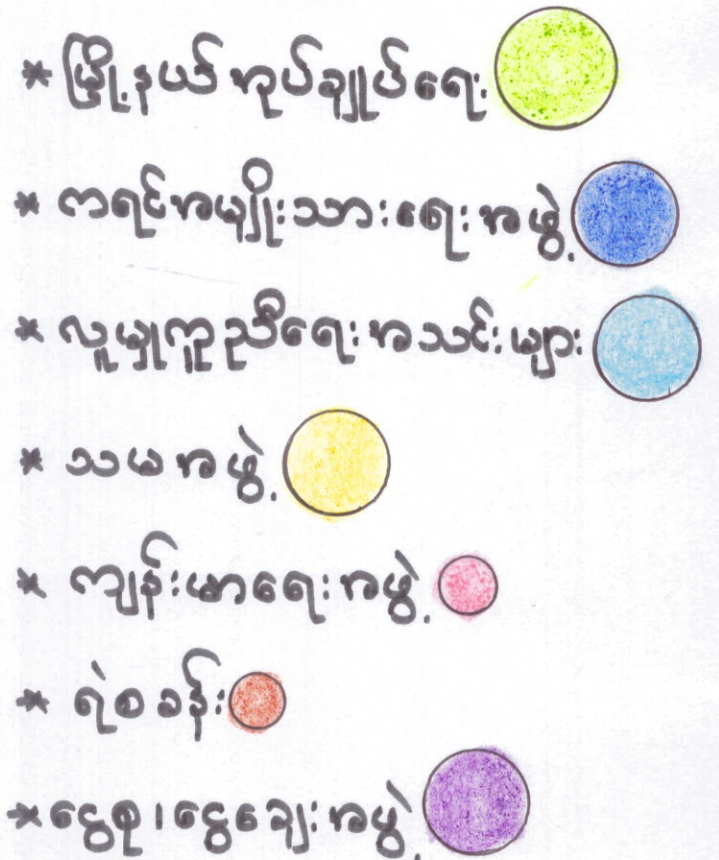 * မြို့နယ်အုပ်ချုပ်ရေး
* ကရင်အမျိုးသားရေးအဖွဲ့
* လူမှုကူညီရေးအသင်းများ
* သမအဖွဲ့
* ကျန်းမာရေးအဖွဲ့
* ရဲစခန်း
* ငွေစု၊ငွေချေးအဖွဲ့